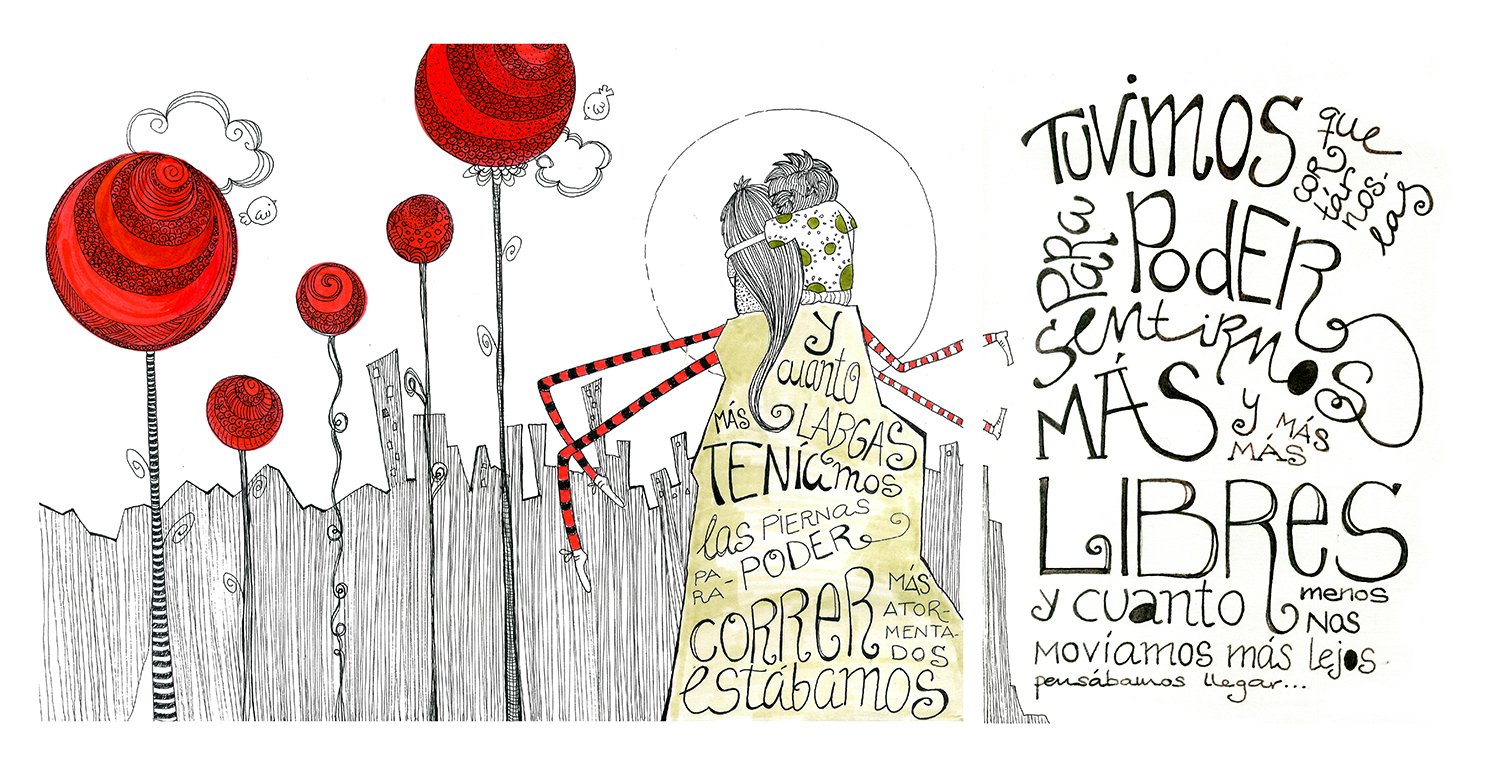 y
cuanto
MÁS LARGAS
TENÍAMOS
las PIERNAS
PA-
RA-
PODER
CORRER
MÁS
ATOR-
MENTA-
DOS
estábamos
TUVIMOS
que
cor
tár
nos-
las
PARA
PodER
sentirnos
MÁS
y MÁS
MÁS
LIBRes
y cuanto
menos
Nos
movíamos más lejos
pensábamos llegar...